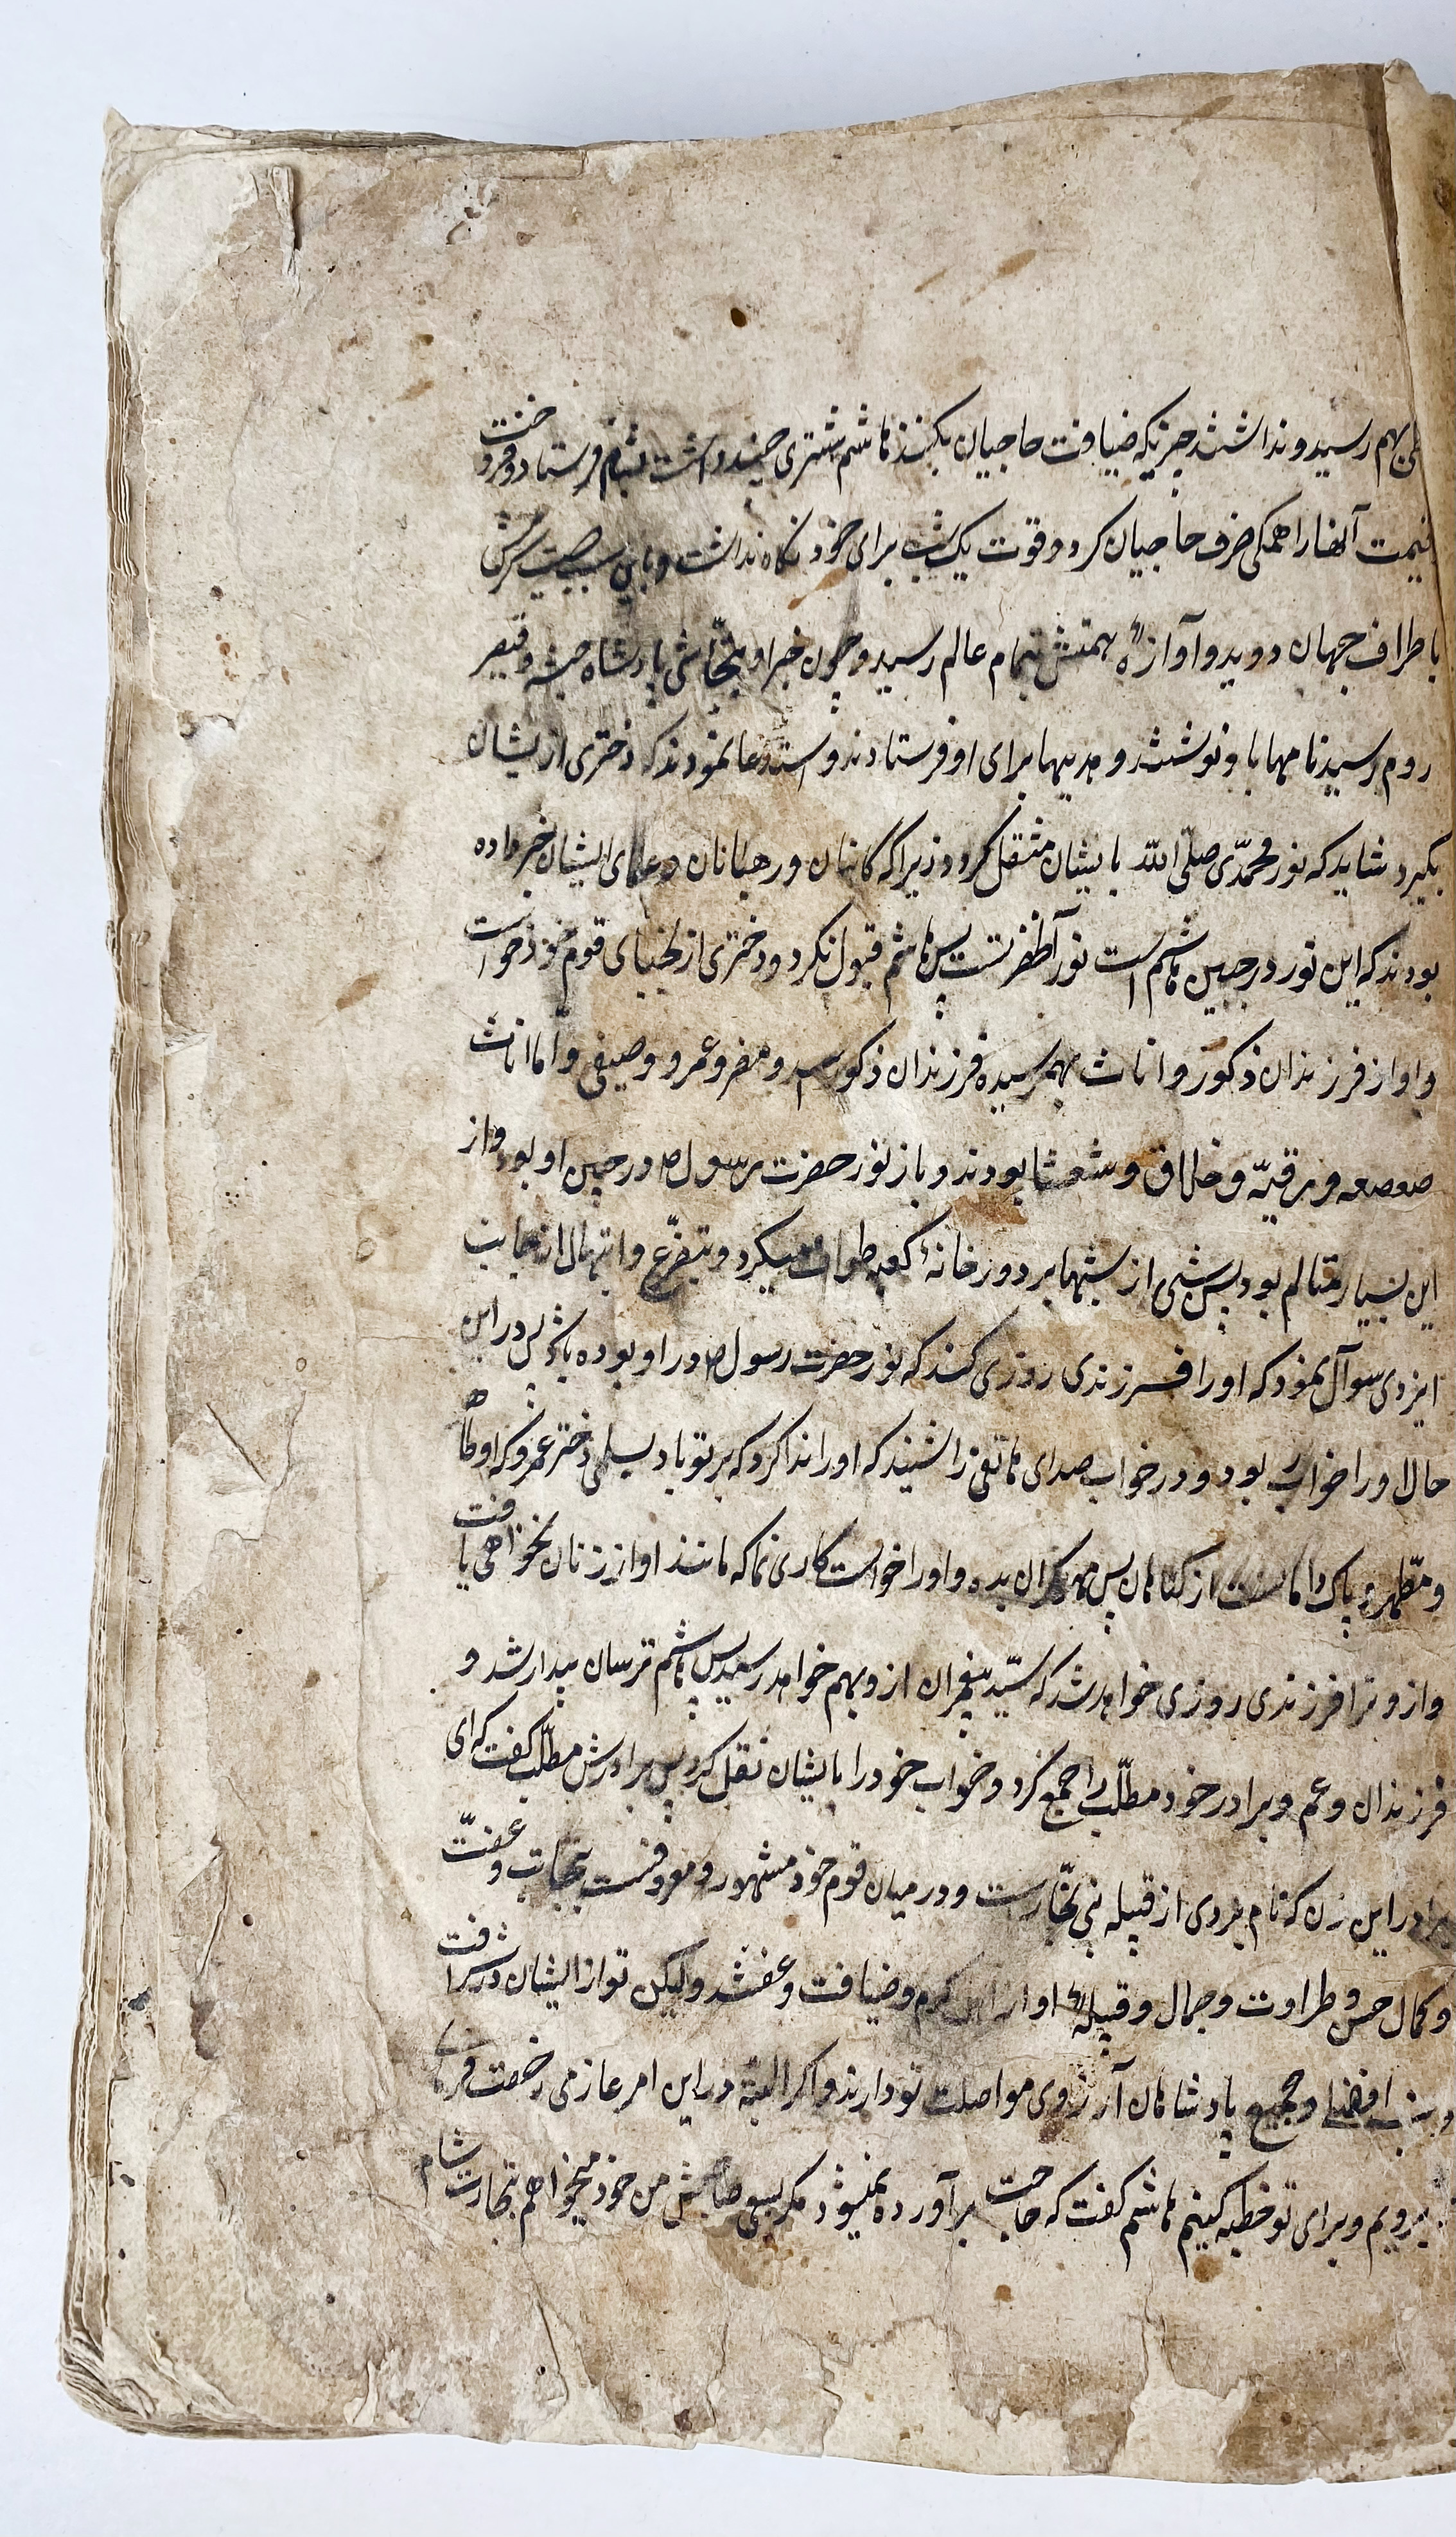 بهم رسید و نداشتند چیزیکه ضیافت حاجیان بکنند هاشم شتری چند داشت بشام فرستاد و فروخت
قیمت آنها را همکی صرف حاجیان کرد و قوت یک شب برای خود نکاه نداشت و باین سبب صیت کرمش
باطراف جهان دوید و آوازهٔ همتش بتمام عالم رسید و چون خبر او بنجّاشی پادشاه حبشه و قیصر
روم رسید نامها باو نوشتند و هدیها برای او فرستادند و استدعا نمودند که دختری از یشان
بکیرد شاید که نور محمّدی صلّی اللّه بایشان منتقل کردد زیرا که کاهنان و رهبانان و علمای ایشان خبر داده
بودند که این نور در جبین هاشم است نور آنحضرتست پس هاشم قبول نکرد و دختری از نجبای قوم خود خواست
و او از فرزندان ذکور و اناث بهمرسیده فرزندان ذکور اسد و مضر و عمرو و صیفی و امّا اناث
صعصعه و رقیّه و خلاق و شعشا بودند و باز نور حضرت رسول ص در جبین او بود و از
این بسیار متالم بود پس شبی از شبها بر دور خانهٔ کعبه طواف میکرد و بتضرّع و ابتهال از جانب
ایزدی سوآل نمود که او را فرزندی روزی کند که نور حضرت رسول ص در او بوده باشد پس در این
حال او را خواب ربود و در خواب صدای هاتفی را شنید که او را ندا کرد که بر تو باد بسلمی دختر عمرو که او طاهره
و مطّهره و پاک دامانست از کناهان پس مهر کران بده و او را خواستکاری نما که مانند او از زنان نخواهی یافت
و از و ترا فرزندی روزی خواهد شد که سیّد پیغمبران از و بهم خواهد رسید پس هاشم ترسان بیدار شد و
فرزندان و عم و برادر خود مطلّب را جمع کرد و خواب خود را بایشان نقل کرد پس برادرش مطلّب کفت که ای
برادر این زن که نام بردی از قبیله بنی نجّارست و در میان قوم خود مشهور و معروفست بنجابت و عفّت
و کمال حسن و طراوت و جمال و قبیلهٔ او از اهل کرم و ضیافت و عفتند ولیکن تو از ایشان در شرافت
و نسب افضلی و جمیع پادشاهان آرزوی مواصلت تو دارند و اکر البته در این امر عازمی رخصت فرما
برویم و برای تو خطبه کنیم هاشم کفت که حاجت برآورده نمیشود مکر بسعی صاحبش من خود میخواهم بتجارت شام